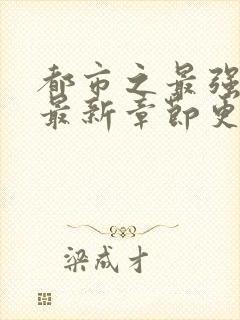 都市之最强
最新章节更
梁成才